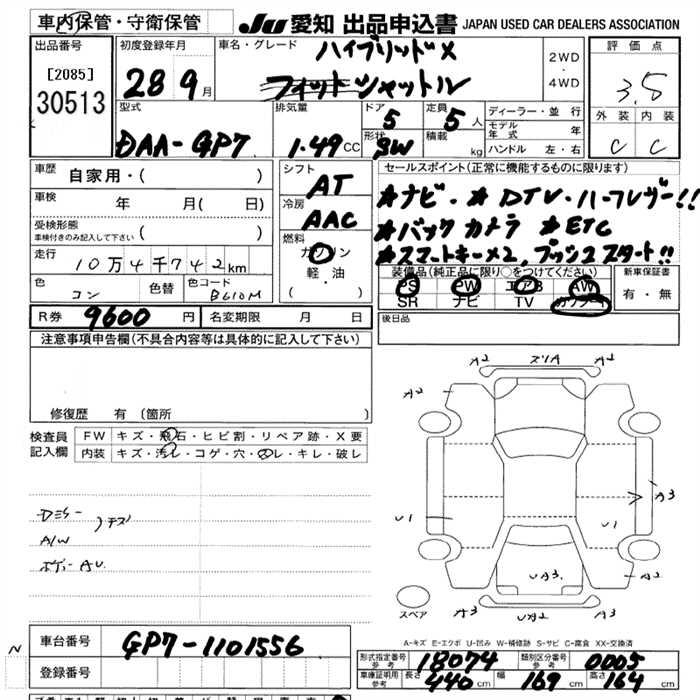 車内保管・守衛保管
JU 愛知 出品申込書 JAPAN USED CAR DEALERS ASSOCIATION
出品番号
[2085]
30513
初度登録年月
28 9月
車名・グレード
ハイブリッドX
フィットシャトル
2WD
・
4WD
評価点
3.5
外装 内装
C C
型式
DAA-GP7
排気量
1.49CC
ドア
5
形状
SW
定員
5人
積載
kg
ディーラー・並行
モデル年式 年
ハンドル 左・右
車歴 自家用・( )
車検 年 月( 日)
受検形態
車検付きのみ記入して下さい ( )
走行
10万4千742km
色
コン
色替
色コード
B610M
シフト
AT
冷房
AAC
燃料
ガソリン
軽・油
( )
セールスポイント(正常に機能するものに限ります)
★ナビ・★DTV・ハーフレザー!!
★バックカメラ ★ETC
★スマートキー×2, プッシュスタート!!
装備品(純正品に限り○をつけてください)
PS PW エアB AW
SR ナビ TV カワシート
新車保証書
有・無
後日品
R券 9600円
名変期限 月 日
注意事項申告欄(不具合内容等は具体的に記入して下さい)
修復歴 有(箇所
検査員記入欄
FW キズ・飛石・ヒビ割・リペア跡・X要
内装 キズ・汚レ・コゲ・穴・スレ・キレ・破レ
Dミラー
A/W
ボディーAU
A2 スリA A2
A2
A3
U1 U1
UA3
A3 UA2 A3
スペア
A-キズ E-エクボ U-凹み W-補修跡 S-サビ C-腐食 XX-交換済
N
車台番号
GP7-1101556
登録番号
形式指定番号
参考
18074
類別区分番号
参考
0005
車庫証明用
参考
長さ 440cm
幅 169cm
高さ 164cm